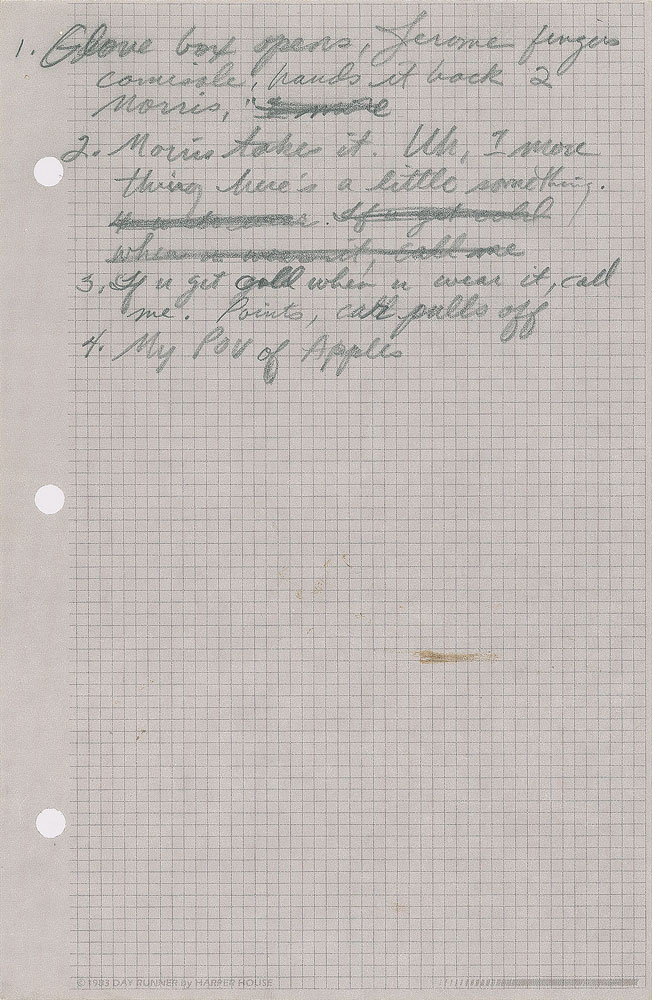 1. Glove box opens, Jerome fingers
camisole, hands it back 2
Morris, "I more
2. Morris takes it. Uh, 1 more
thing here's a little something.
If u get cold
when u wear it, call me
3. If u get cold when u wear it, call
me. Points, car pulls off
4. My POV of Apples
©1983 DAY RUNNER by HARPER HOUSE